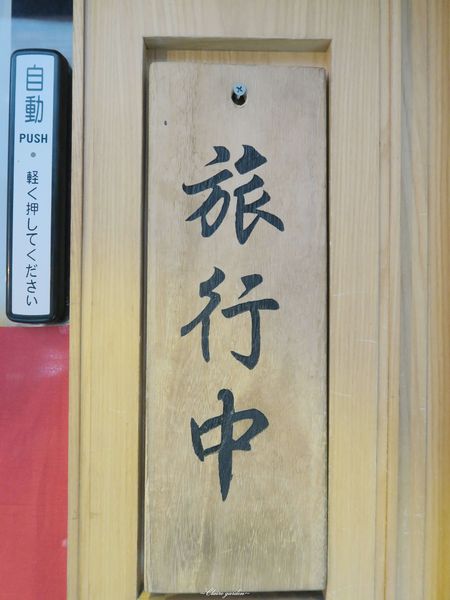 自動
PUSH
軽く押してください
旅行中
~Claire garden~